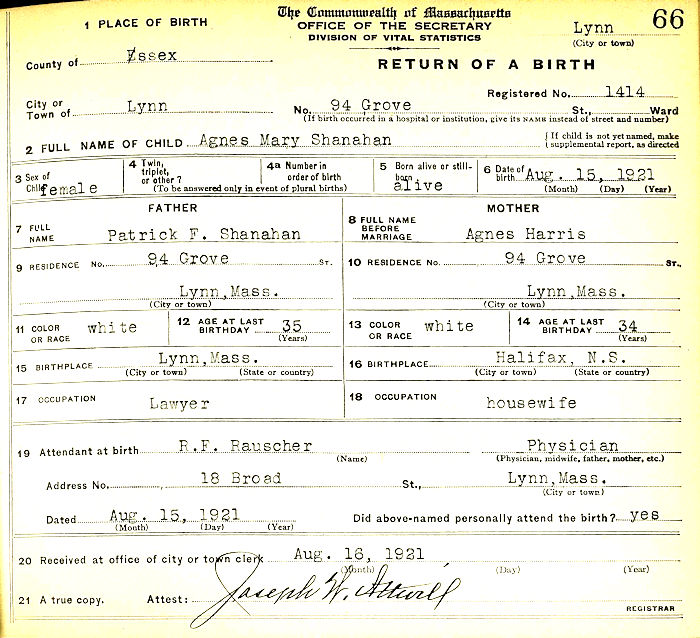 The Commonwealth of Massachusetts
OFFICE OF THE SECRETARY
DIVISION OF VITAL STATISTICS
66
1 PLACE OF BIRTH
Lynn
(City or town)
County of Essex
RETURN OF A BIRTH
Registered No. 1414
City or Town of Lynn No. 94 Grove St., Ward
(If birth occurred in a hospital or institution, give its NAME instead of street and number)
2 FULL NAME OF CHILD Agnes Mary Shanahan
{ If child is not yet named, make supplemental report, as directed
3 Sex of Child female
4 Twin, triplet, or other?
4a Number in order of birth
(To be answered only in event of plural births)
5 Born alive or still-born alive
6 Date of birth Aug. 15, 1921
(Month) (Day) (Year)
FATHER
MOTHER
7 FULL NAME Patrick F. Shanahan
8 FULL NAME BEFORE MARRIAGE Agnes Harris
9 RESIDENCE No. 94 Grove ST.
10 RESIDENCE No. 94 Grove ST.,
Lynn,Mass.
(City or town)
Lynn,Mass.
(City or town)
11 COLOR OR RACE white
12 AGE AT LAST BIRTHDAY 35
(Years)
13 COLOR OR RACE white
14 AGE AT LAST BIRTHDAY 34
(Years)
15 BIRTHPLACE Lynn,Mass.
(City or town) (State or country)
16 BIRTHPLACE Halifax, N.S.
(City or town) (State or country)
17 OCCUPATION Lawyer
18 OCCUPATION housewife
19 Attendant at birth R.F. Rauscher Physician
(Name) (Physician, midwife, father, mother, etc.)
Address No. 18 Broad St., Lynn,Mass.
(City or town)
Dated Aug. 15, 1921 Did above-named personally attend the birth? yes
(Month) (Day) (Year)
20 Received at office of city or town clerk Aug. 16, 1921
(Month) (Day) (Year)
21 A true copy. Attest: Joseph W. Attwill
REGISTRAR